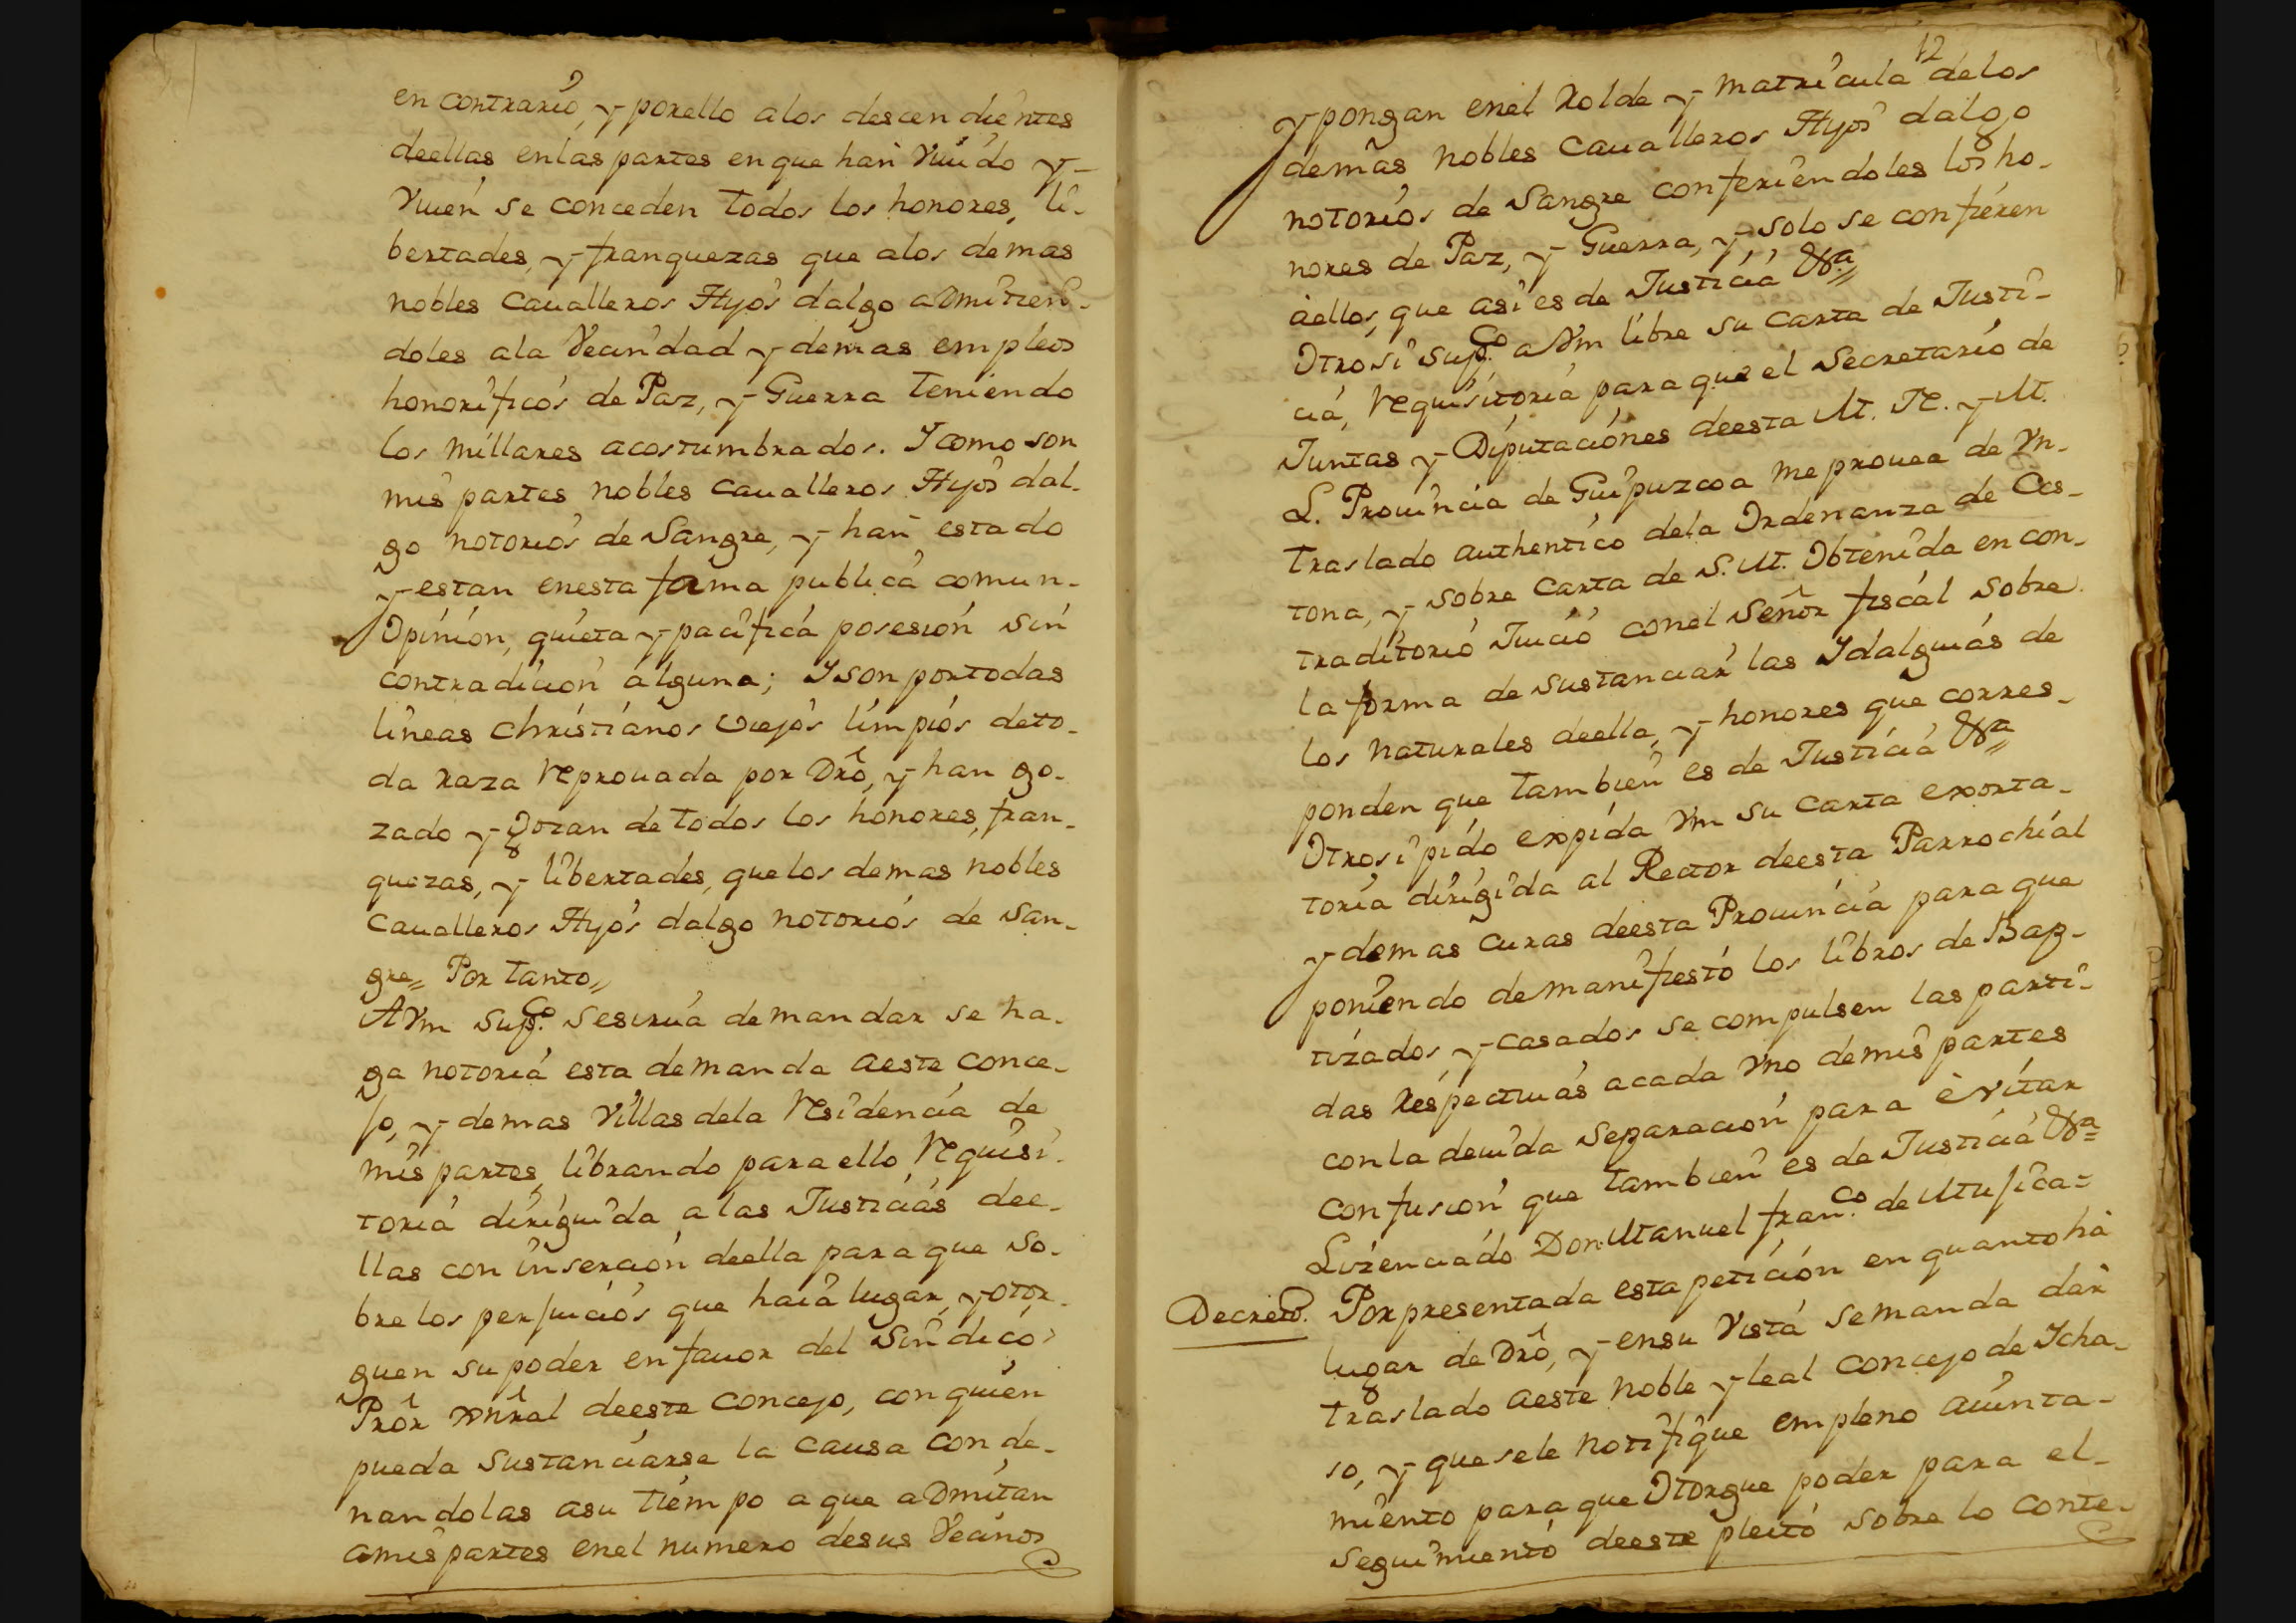 en contrario, y porello alos descendientes
deellas enlaspartes enque han viuido y-
viuen se conceden todos los honores, li-
bertades, y franquezas que alos demas
nobles Caualleros Hijos dalgo admitien-
doles ala Vecindad y demas empleos
honorificos de Paz, y Guerra teniendo
los millares acostumbrados. Y como son
mis partes nobles Caualleros Hijos dal-
go notorios de Sangre, y han estado
y estan enesta fama publica comun-
Opinion, quieta y pacifica posesion sin
contradicion alguna; Y son portodas
lineas christianos viejos limpios deto-
da raza reprouada por Dro, y han go-
zado y Gozan de todos los honores, fran-
quezas, y libertades, quelos demas nobles
Caualleros Hijos dalgo notorios de San-
gre,, Por tanto,,
A Vm supco. sesirua demandar se ha-
ga notoria esta demanda aeste conce-
jo, y demas Villas dela residencia de
mis partes, librando para ello requisi-
toria diriguida alas Justicias dee-
llas con insercion deella para que so-
bre los perjuicios que haia lugar, y otor-
guen su poder en fauor del Sindico
Pror Gnral deeste Concejo, con quien
pueda sustanciarse la causa conde-
nandolas asu tiempo a que admitan
amispartes enel numero desus Vecinos
12
y pongan enel rolde y matricula delos
demas nobles caualleros Hijos dalgo
notorios de Sangre confiriendoles los ho-
nores de Paz, y Guerra, y, solo se confieren
aellos, que asi es de Justicia &a,,
Otrosi supco. a Vm libre su carta de Justi-
cia, requisitoria para que el Secretario de
Juntas y Diputaciones deesta M. N. y M.
L. Prouincia de Guipuzcoa me prouea de vn-
traslado authentico dela Ordenanza de Ces-
tona, y sobre Carta de S. M. Obtenida en con-
traditorio Juicio conel Señor fiscal sobre
la forma de sustanciar las Ydalguias de
los naturales deella, y honores que corres-
ponden que tambien es de Justicia &a,,
Otrosi pido expida Vm su carta exorta-
toria dirigida al Rector deesta Parrochial
y demas curas deesta Prouincia para que
poniendo demanifiesto los libros de Bap-
tizados, y casados se compulsen las parti-
das respectiuas acada vno demis partes
conla deuida separacion para èvitar
confusion que tambien es de Justicia &a=
Lizenciado Don Manuel franco. de Mujica=
Decreto. Porpresentada esta peticion en quanto hà
lugar de Dro, y ensu vista semanda dar
traslado aeste noble y leal concejo de Icha-
so, y quesele notifique empleno auinta-
miento paraque Otorgue poder para el-
seguimiento deeste pleito sobre lo conte-